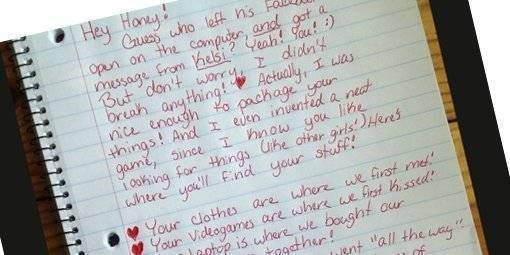 Hey Honey!
Guess who left his Facebook
open on the computer, and got a
message from Kelsi? Yeah! You! :)
But don't worry, I didn't
break anything! Actually, I was
nice enough to package your
things! And I even invented a neat
game, since I know you like
looking for things (like other girls!) Here's
where you'll find your stuff!
Your clothes are where we first met!
Your videogames are where we first kissed!
laptop is where we bought our
together!
went "all the way"!
of